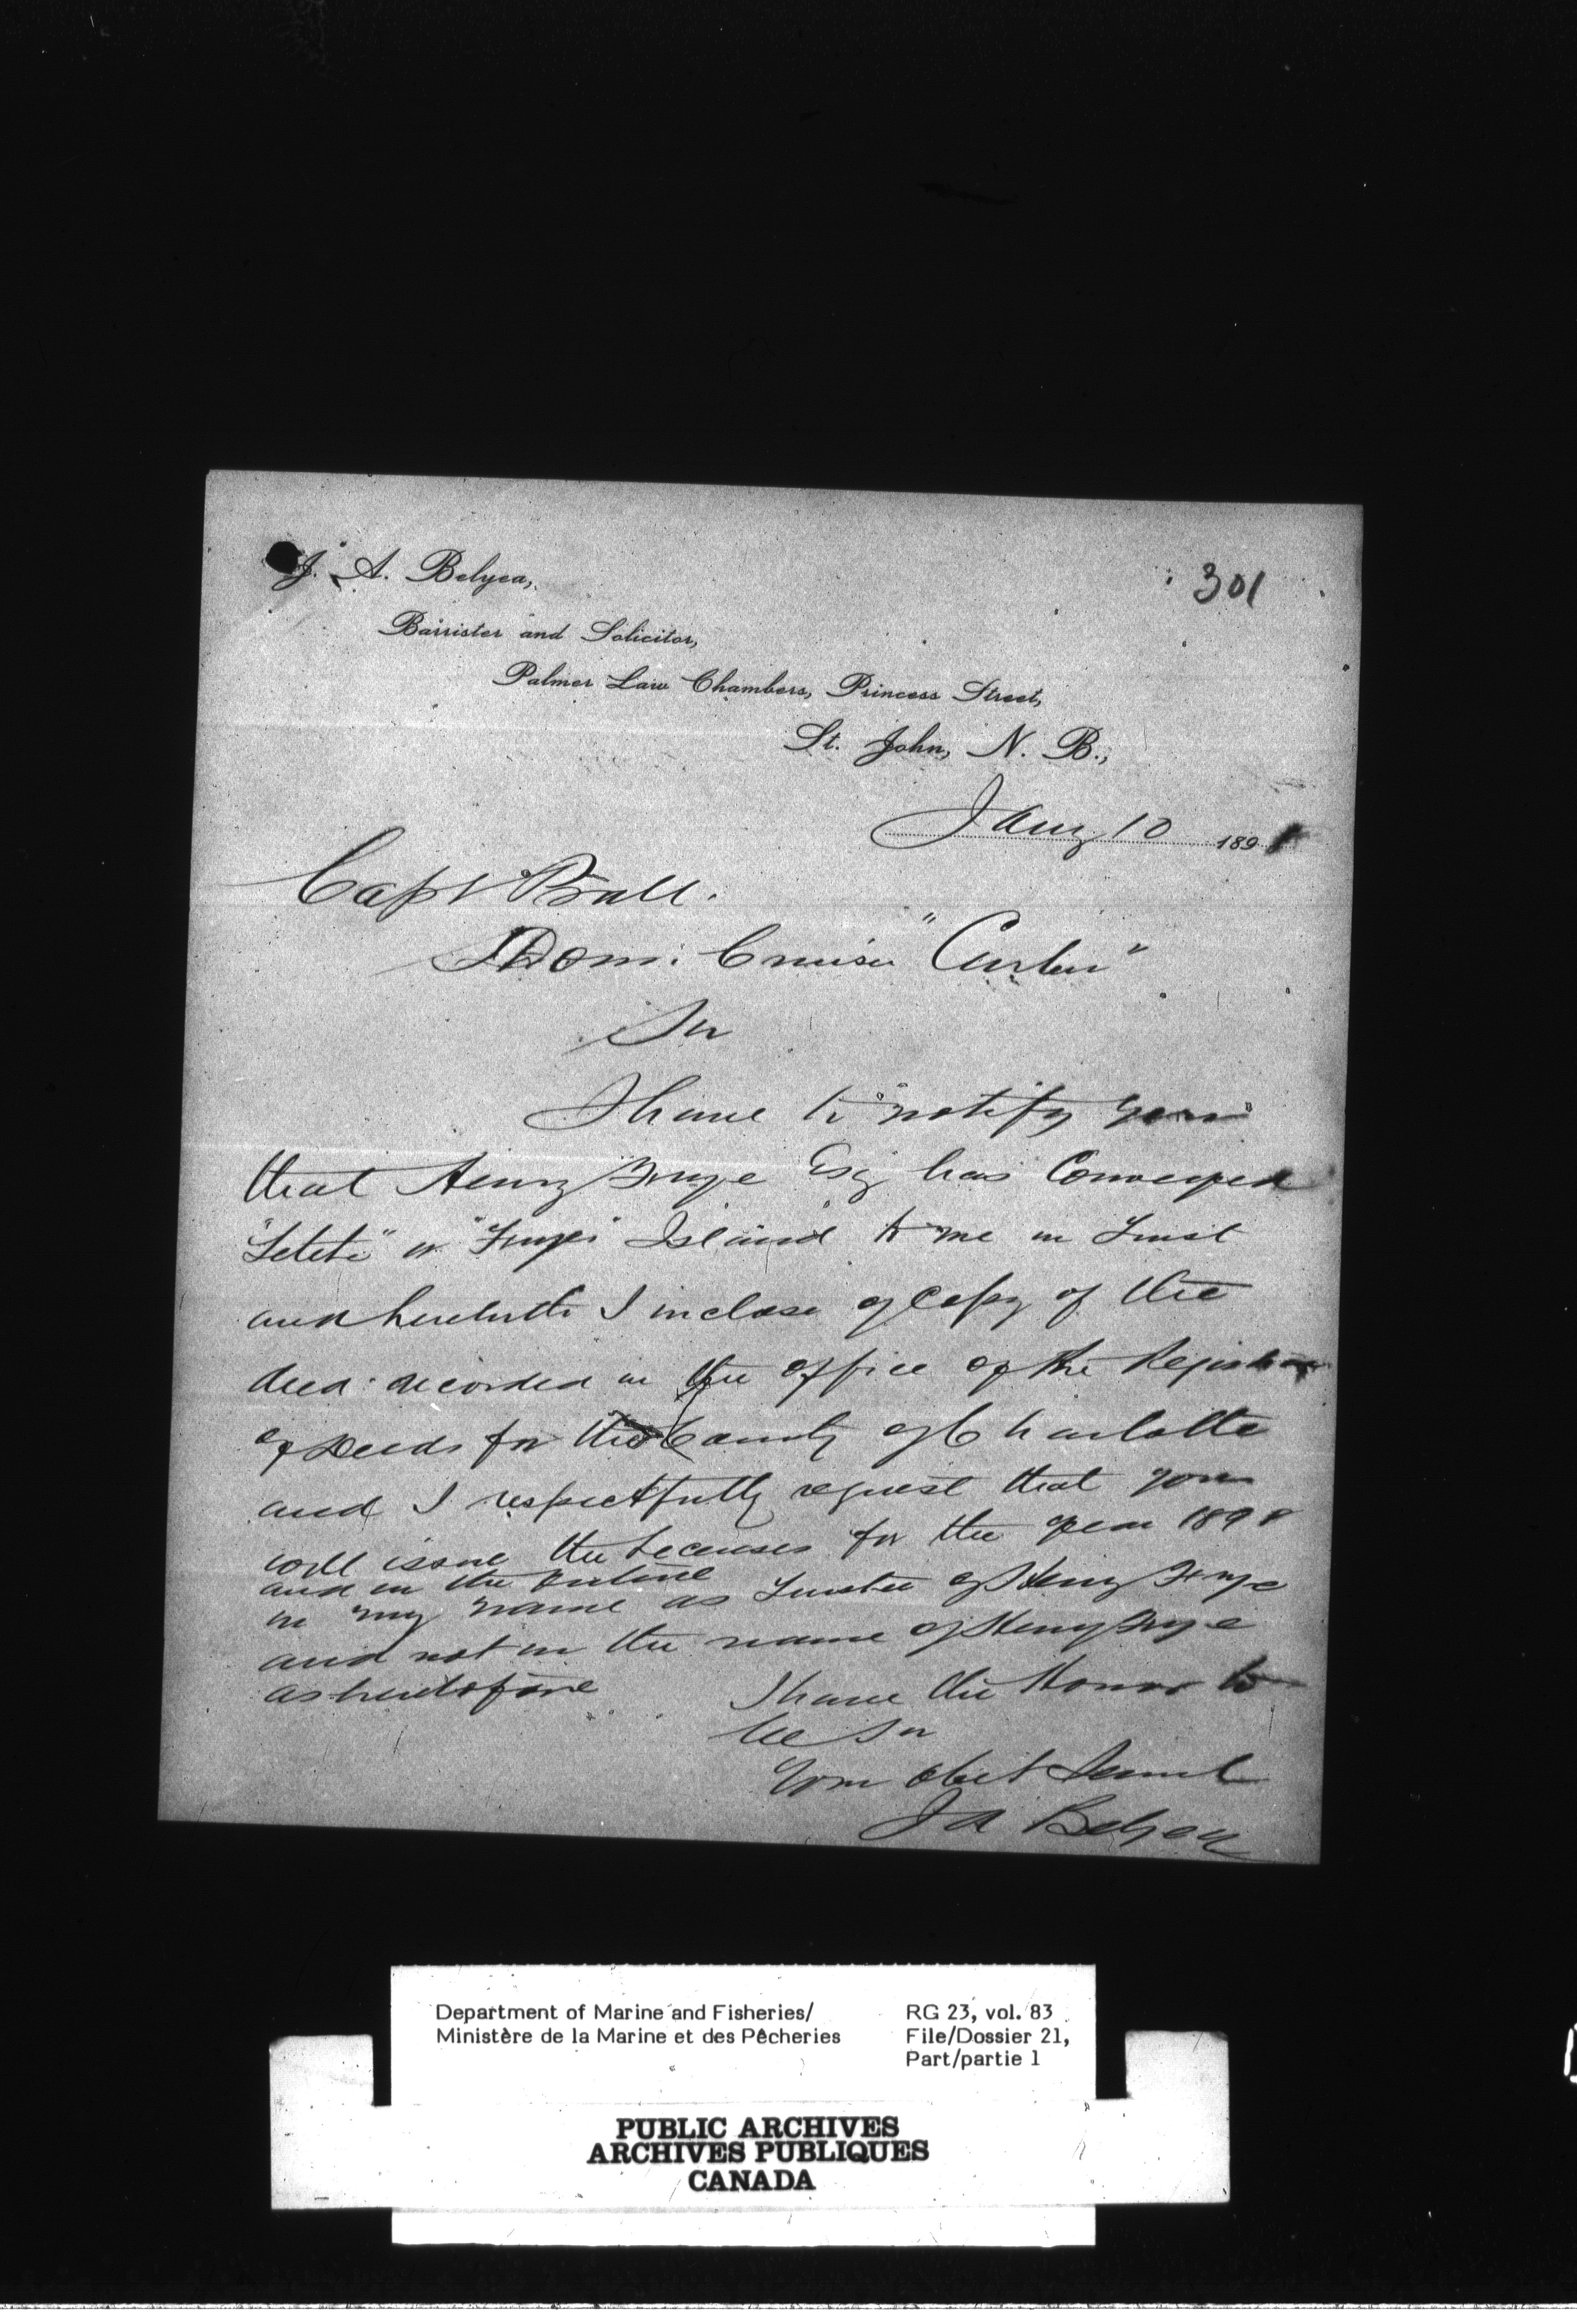 301
J. A. Belyea,
Barrister and Solicitor,
Palmer Law Chambers, Princess Street,
St. John, N. B.,
Jany 10 189
Capt Pratt.
Dom: Cruiser "Curlew"
Sir
I have to notify you
that Henry Frye Esq has Conveyed
"Letete" or "Fryes" Island to me in Trust
and herewith I inclose copy of the
deed recorded in the office of the Registrar
of Deeds for the County of Charlotte
and I respectfully request that you
will issue the Licenses for the year 1898
and in the future
in my name as Trustee of Henry Frye
and not in the name of Henry Frye
as heretofore
I have the Honor to
be Sir
Your Obet Servt
J A Belyea
Department of Marine and Fisheries/
Ministère de la Marine et des Pêcheries
RG 23, vol. 83
File/Dossier 21,
Part/partie 1
PUBLIC ARCHIVES
ARCHIVES PUBLIQUES
CANADA